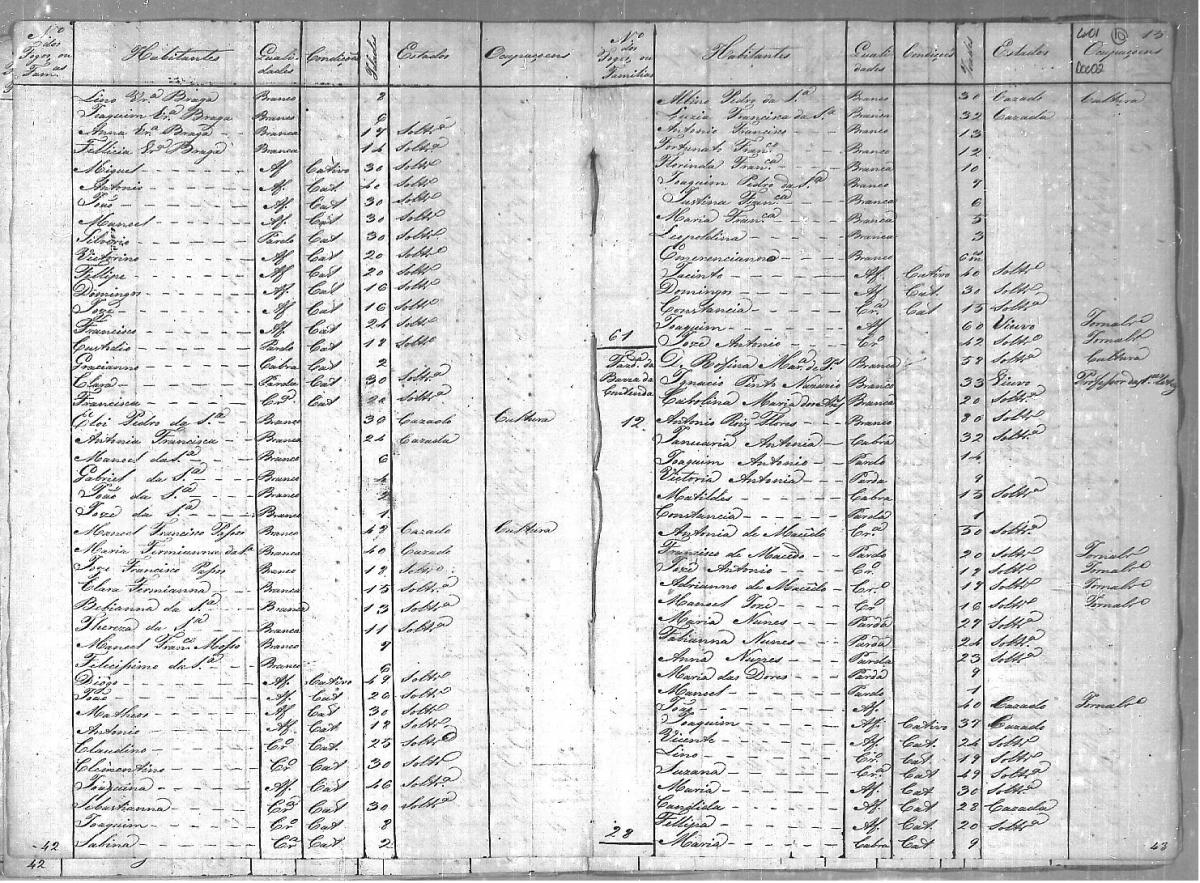 Nº dos Fogos, ou Famas Habitantes Quali dades Condição Idades Estados Ocupaçoens
Lino Frª Braga Branco 8
Joaquim Frª Braga Branco 6
Anna Frª Braga Branca 17 Soltrª
Fellicia Frª Braga Branca 14 Soltrª
Miguel Af Cativo 30 Soltrº
Antonio Af. Cat 40 Soltrº
João Af. Cat 30 Soltrº
Manoel Af. Cat 30 Soltrº
Silverio Pardo Cat 30 Soltrº
Victorino Af. Cat 20 Soltrº
Fellipe Af. Cat 20 Soltrº
Domingos Af. Cat 16 Soltrº
Jozé Af. Cat 16 Soltrº
Francisco Af. Cat 24 Soltrº
Custodio Pardo Cat 12 Soltrº
Gracianno Cabra Cat 2
Clara Parda Cat 30 Soltrª
Francisca Crª Cat 20 Soltrª
Eloi Pedro da Sª Branco 30 Cazado Cultura
Antonia Francisca Branca 24 Cazada
Manoel da Sª Branco 6
Gabriel da Sª Branco 4
João da Sª Branco 2
Jozé da Sª Branco 1
Manoel Francisco Passos Branco 47 Cazado Cultura
Maria Firmianna da Sª Branca 40 Cazado
Jozé Francisco Passos Branco 12 Soltrº
Clara Firmianna Branca 15 Soltrª
Bebianna da Sª Branca 13 Soltrª
Thereza da Sª Branca 11 Soltrª
Manoel Francº Branco 7
Felicissimo da Sª Branco 6
Diogo Af. Cativo 49 Soltrº
João Af. Cat 20 Soltrº
Matheos Af. Cat 30 Soltrº
Antonio Af. Cat 12 Soltrº
Claudino Crº Cat. 25 Soltrº
Clementino Crº Cat 30 Soltrº
Joaquina Af. Cat 46 Soltrª
Sebastianna Crª Cat 30 Soltrª
Joaquim Crº Cat 8
Sabina Crª Cat 2
42
42
Nº dos Fogos, ou Familias Habitantes Quali dades Condiçoes Idades Estados Ocupaçoens
13
Albino Pedro da Sª Branco 30 Cazado Cultura
Luzia Francisca da Sª Branca 32 Cazada
Antonio Francisco Branco 13
Fortunato Franº Branco 12
Florinda Franca Branca 10
Joaquim Pedro da Sª Branco 7
Justina Franca Branca 6
Maria Franca Branca 5
Leopoldina Branca 3
Branco 6 m
Jacinto Af. Cativo 40 Soltrº
Domingos Af Cat. 30 Soltrº
Constancia Crª Cat 15 Soltrª
Joaquim Af 60 Viuvo Jornalrº
61 Jozé Antonio Crº 42 Soltrº Jornalrº
D. Rosina Mar. de Branca 58 Soltrª Cultura
Ignacio Pinto Branco 33 Viuvo Professor das
Carolina Maria Branca 20 Soltrª
12. Antonio Roiz Flores Branco 80 Soltrº
Januaria Antonia Cabra 32 Soltrª
Joaquim Antonio Pardo 14
Victoria Antonia Parda 9
Matildes Cabra 13 Soltrª
Constancia Parda 1
Antonia de Macêdo Crª 50 Soltrª
Francisco de Macêdo Pardo 20 Soltrº Jornalrº
Jozé Antonio Crº 19 Soltrº Jornalrº
Adrianno de Macêdo Crº 17 Soltrº Jornalrº
Manoel Jozé Crº 16 Soltrº Jornalrº
Maria Nunes Parda 27 Soltrª
Fabianna Nunes Parda 24 Soltrª
Anna Nunes Parda 23 Soltrª
Maria das Dores Parda 9
Manoel Pardo 1
João Af. 40 Cazado Jornalrº
Joaquim Af. Cativo 37 Cazado
Vicente Af. Cat. 24 Soltrº
Lino Crº Cat. 19 Soltrº
Suzana Crª Cat 49 Soltrª
Maria Af. Cat 30 Soltrª
Candida Af. Cat 28 Cazada
Fellizia Af. Cat. 20 Soltrª
28 Maria Cabra Cat 9
43